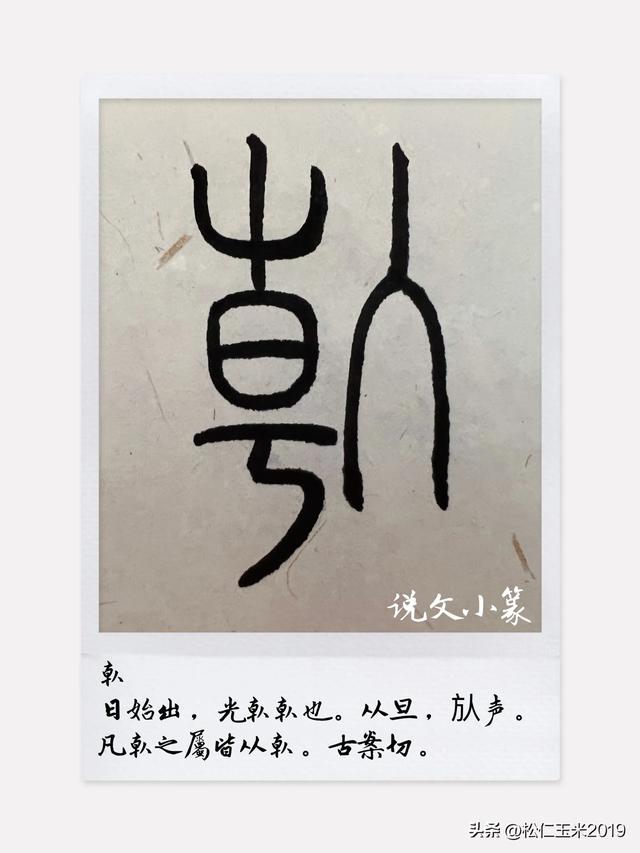 倝
说文小篆
倝
日始出，光倝倝也。从旦，㫃声。
凡倝之屬皆从倝。古案切。
头条 @松仁玉米2019